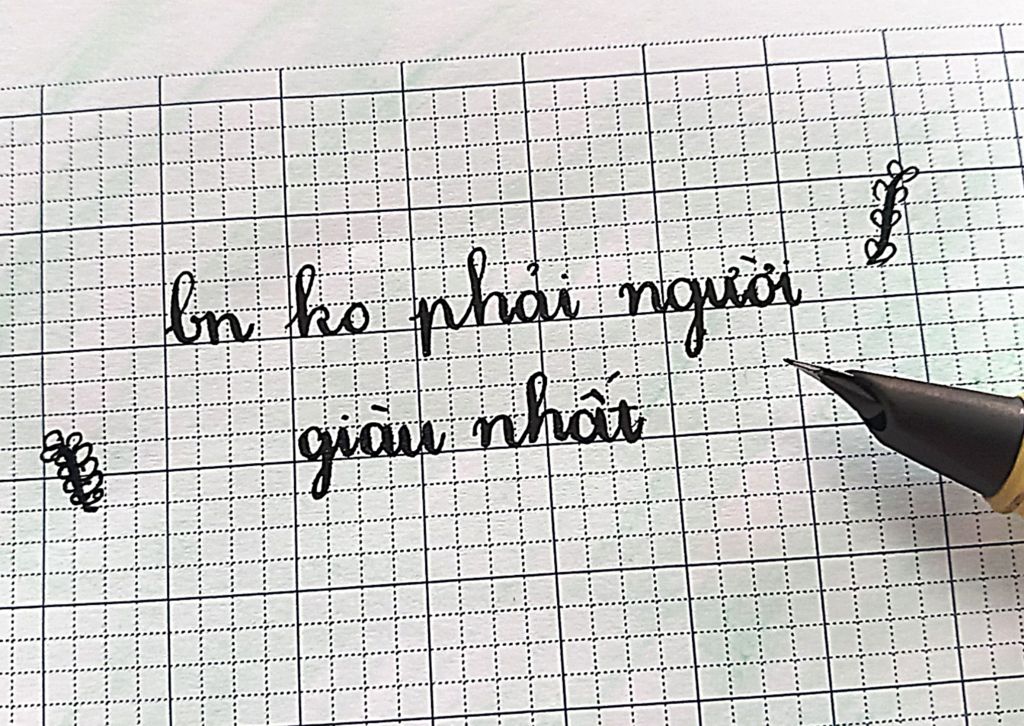 bn ko phải người
giàu nhất